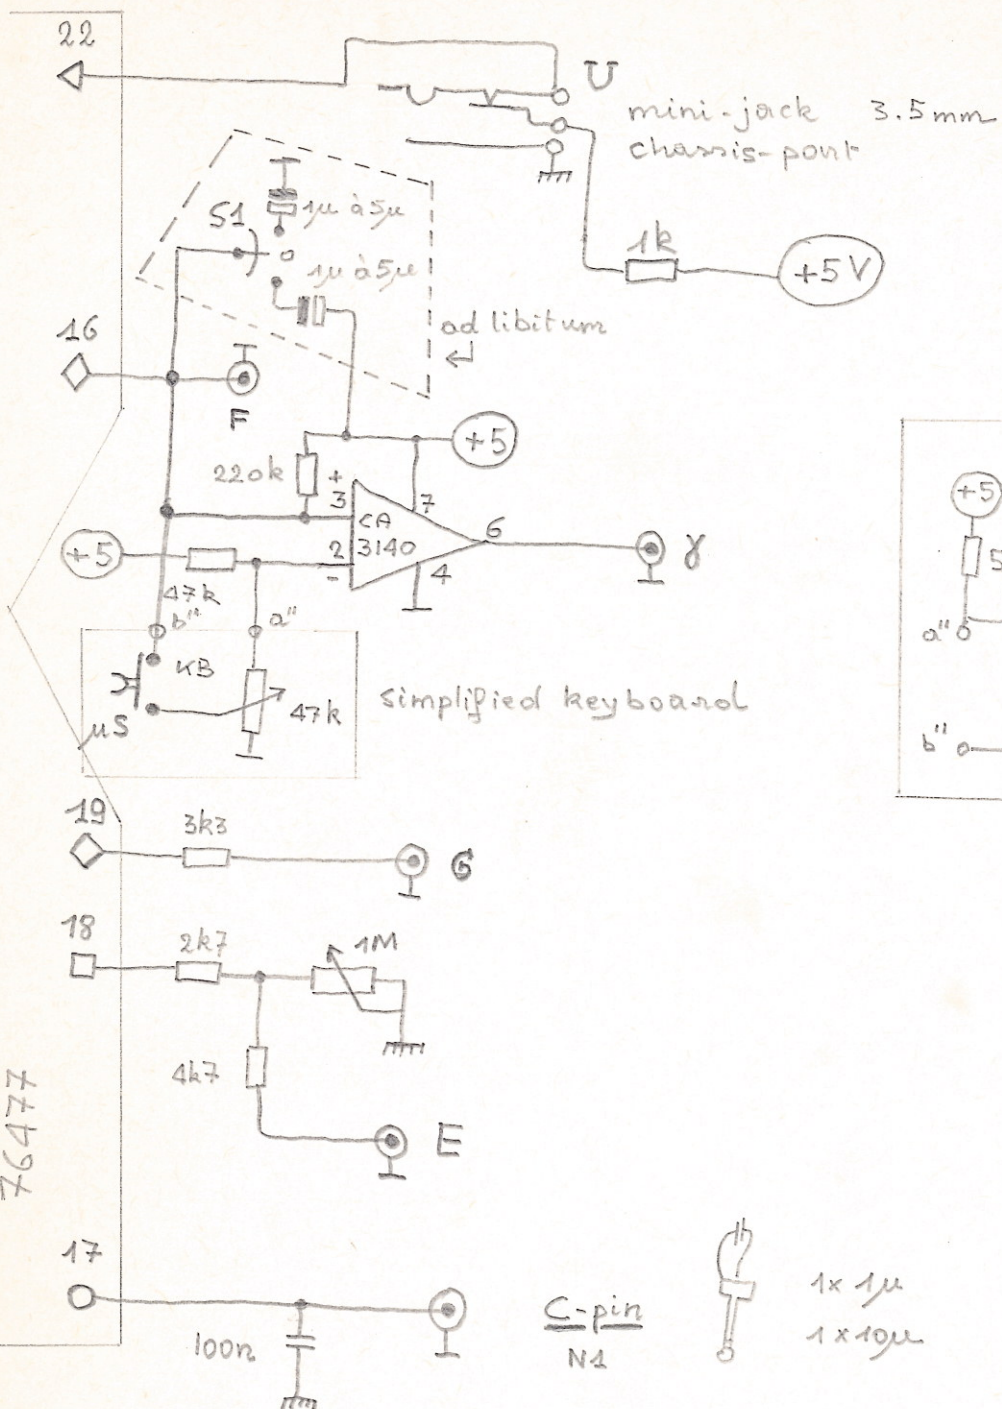 22
U
mini-jack 3.5mm
chassis-pont
S1
1µ à 5µ
1µ à 5µ
1k
+5V
16
ad libitum
F
+5
220k
+
3
7
CA
3140
6
γ
+5
2
-
4
47k
b"
a"
KB
µS
47k
simplified keyboard
+5
5
a"
b"
19
3k3
G
18
2k7
1M
4k7
E
76477
17
100n
C-pin
N1
1x 1µ
1x10µ